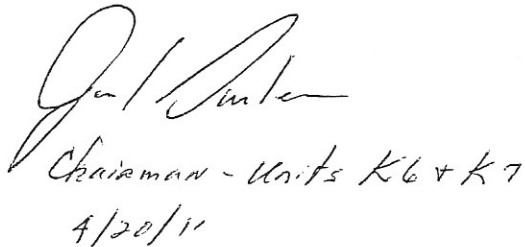 Chairman - Units K6 + K7
4/20/11